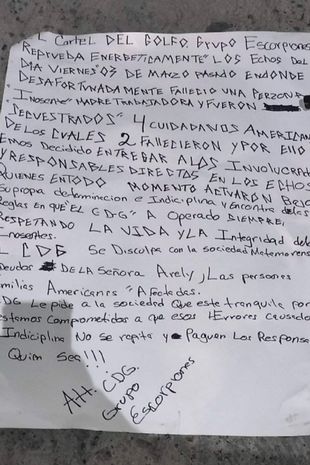 EL Cartel DEL GOLFO. Grupo Escorpiones
REPRUEBA ENERGETICAMENTE" LOS Echos Del
DIA VIERNES" 03 DE MARZO PASADO ENDONDE
DESAFORTUNADAMENTE FALLECIO UNA PERZONA
INOSENTE" MADRE TRABAJADORA Y FUERON
SECUESTRADOS" 4 CUIDADANOS AMERICAN
DE LOS CUALES 2 FALLECIERON Y POR ELLO
EMOS DECIDIDO ENTREGAR A LOS INVOLUCRAD
Y RESPONSABLES DIRECTOS EN LOS ECHOS
QUIENES ENTODO MOMENTO ACTUARÓN BAJO
Supropia determinacion e Indiciplina y Encontra de las
Reglas en que" EL C D G" A Operado SIEMPRE,
RESPETANDO LA VIDA Y LA Integridad de
Inosentes.
EL C D G Se Disculpa con la sociedad Matamoren
Deudos DE LA Señora Arely, y Las persones
milias Americanes" Afectadas.
CDG Le pide a la sociedad Que este tranquila por
estamos Comprometidos a que esos "Errores causado
Indiciplina No se repita y Paguen Los Responsa
Quien Sea!!!
Att. CDG.
Grupo
Escorpiones